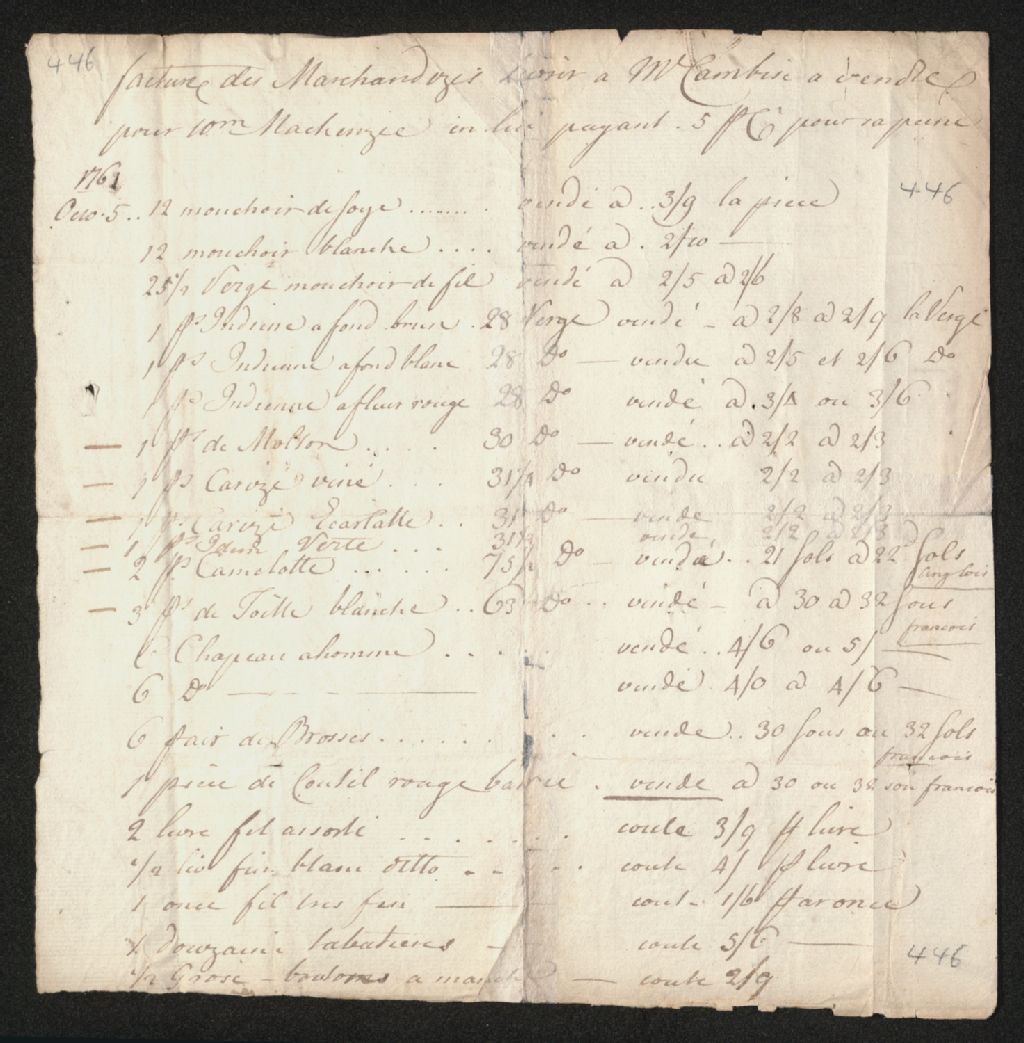 446
facture des Marchandizes Livrir a Mr Cambise a vendre
pour 10m Mackenzie en lui payant 5 p C pour sa peine
1761
446
Octo. 5.. 12 mouchoir de soye ........ vendé a .. 3/9 la piece
12 mouchoir blanche .... vendé a . 2/10 —
25 1/2 Verge mouchoir de fil vendé a 2/5 a 2/6
1 ps Indiene a fond brun . 28 Verge vendé – a 2/8 a 2/9 la Verge
1 ps Indienne a fond blanc 28 Do — vendu a 2/5 et 2/6 Do
1 ps Indienne a fleur rouge 28 Do vendé a . 3/4 ou 3/6
— 1 ps de Molton ..... 30 Do — vendé .. a 2/2 a 2/3
— 1 ps Carizé .... 31 1/4 Do vendu 2/2 a 2/3
— 1 ps Carizé Ecarlatte .. 31 Do — vendé 2/2 a 2/3
— 1 ps Idem Verte ... 31 1/2 vendé 2/2 a 2/3
— 2 ps Camelotte ...... 75 1/2 Do — vendé .. 21 sols a 22 sols
anglois
— 3 ps de Toille blanche .. 63 Do .. vendé – a 30 a 32 sous
francois
6 Chapeau a homme ..... vendé .. 4/6 ou 5/ —
6 Do — vendé . 4/0 a 4/6 —
6 pair de Brosses ......... vendé .. 30 sous ou 32 sols
francois
1 piece de Coutil rouge barré . vendé a 30 ou 32 sou francois
2 livre fil assorti ....... coute 3/9 p livre
1/2 liv fin blanc ditto - - . . coute 4/ p livre
1 once fil tres fin — coute 1/6 par once
1/2 Douzaine tabatieres - coute 5/6 —
446
1/2 Grose – boutons a manche — coute 2/9